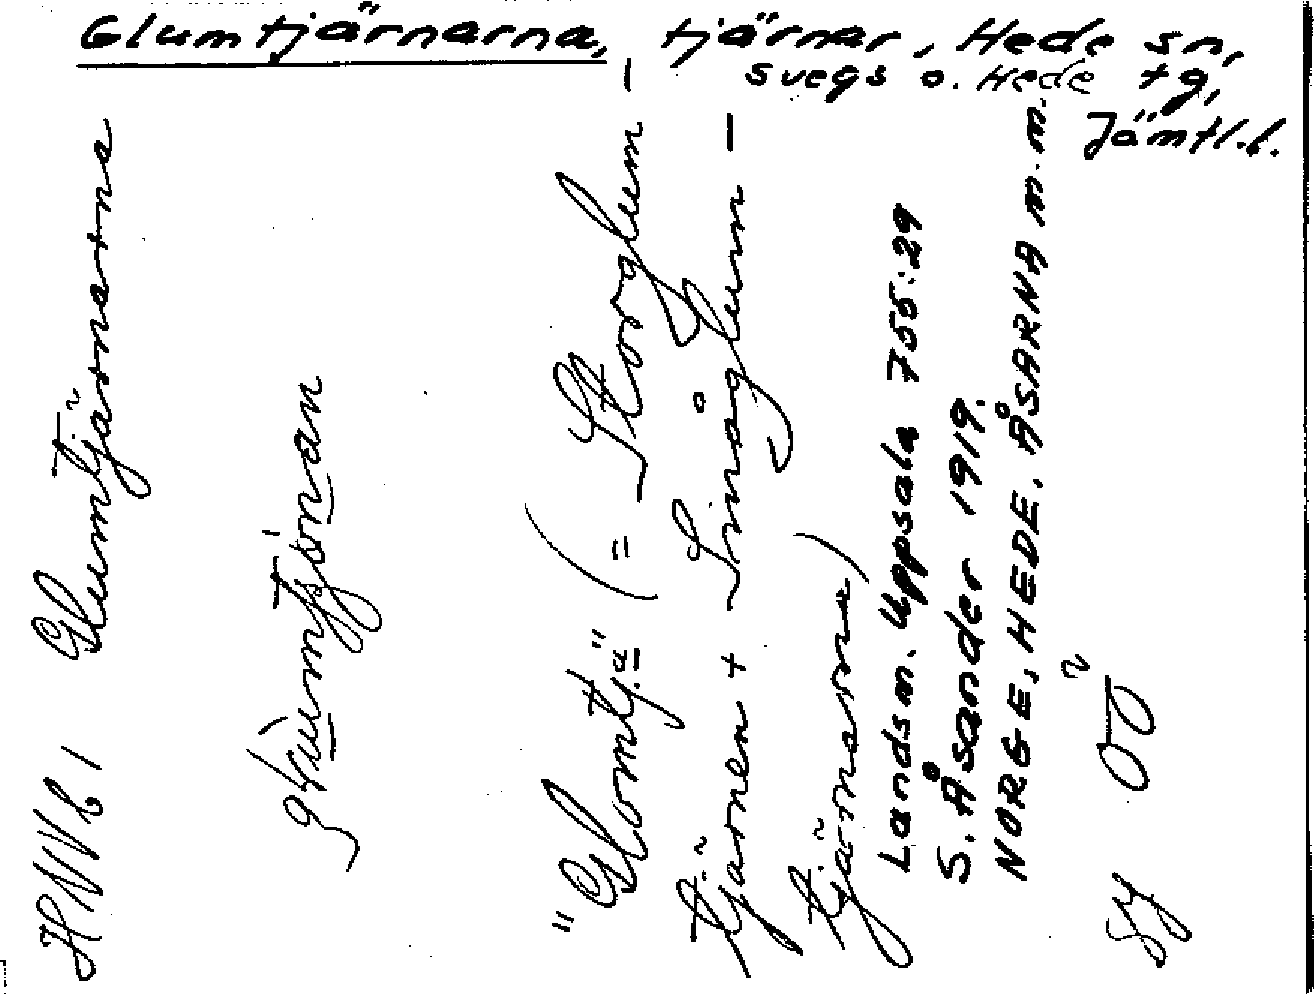 Glumtjärnarna, tjärnar, Hede sn,
Svegs o. Hede tg,
Jämtl.l.
Glumtjärnarna
"Glomtj.ä" (= Storglum-
tjärnen + Småglum-
tjärnarna)
Landsm. Uppsala 755:29
S. Åsander 1919.
NORGE, HEDE, ÅSARNA m.m.